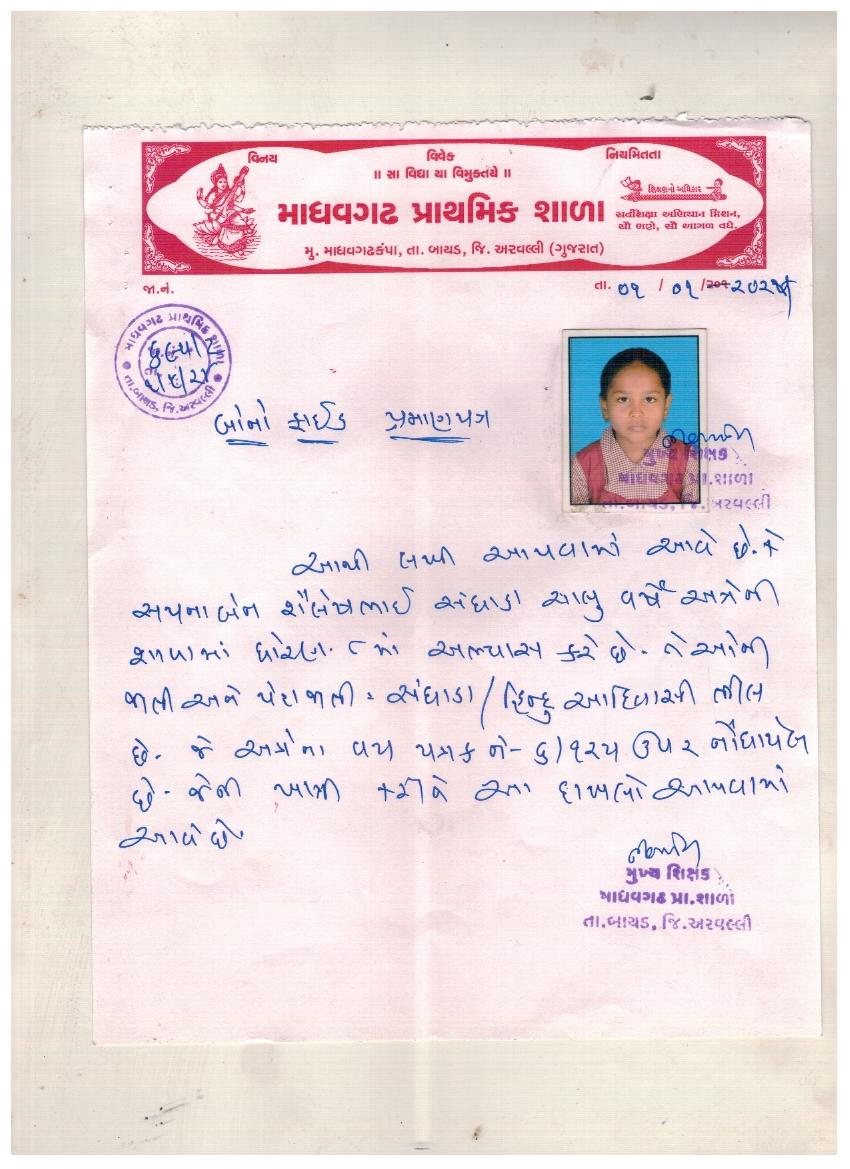 વિનય વિવેક નિયમિતતા
॥ સા વિદ્યા યા વિમુક્તયે ॥
શિક્ષણનો અધિકાર
માધવગઢ પ્રાથમિક શાળા
સર્વશિક્ષા અભિયાન મિશન,
સૌ ભણે, સૌ આગળ વધે.
મુ. માધવગઢકંપા, તા. બાયડ, જિ. અરવલ્લી (ગુજરાત)
જા.નં. તા. ૦૧ / ૦૧ /
માધવગઢ પ્રાથમિક શાળા
તા.બાયડ, જિ.અરવલ્લી
બોનો ફાઈડ પ્રમાણપત્ર
મુખ્ય શિક્ષક
માધવગઢ પ્રા.શાળા
તા.બાયડ, જિ.અરવલ્લી
આથી લખી આપવામાં આવે છે. કે
સપનાબેન શૈલેષભાઈ સંઘાડા ચાલુ વર્ષે અત્રેની
શાળામાં ધોરણ. ૮માં અભ્યાસ કરે છે. તેઓની
જાતી અને પેટાજાતી = સંઘાડા / હિન્દુ આદિવાસી ભીલ
છે. જે અત્રેના વય પત્રક ને- ૬/૧૨૫ ઉપર નોંધાયેલ
છે. જેની ખાત્રી કરીને આ દાખલો આપવામાં
આવે છે.
મુખ્ય શિક્ષક
માધવગઢ પ્રા.શાળા
તા.બાયડ, જિ.અરવલ્લી